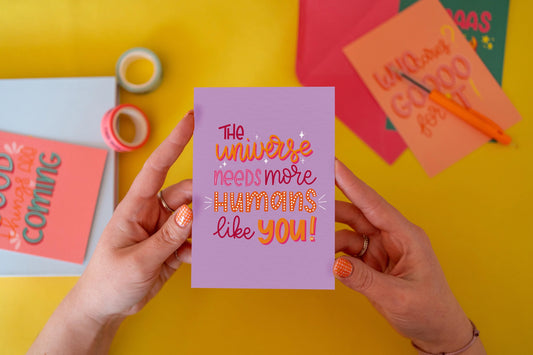 THE
universe
NEEDS more
HUMANS
like YOU!
things are
COMING
WHO cares?
GOOOO
for IT!